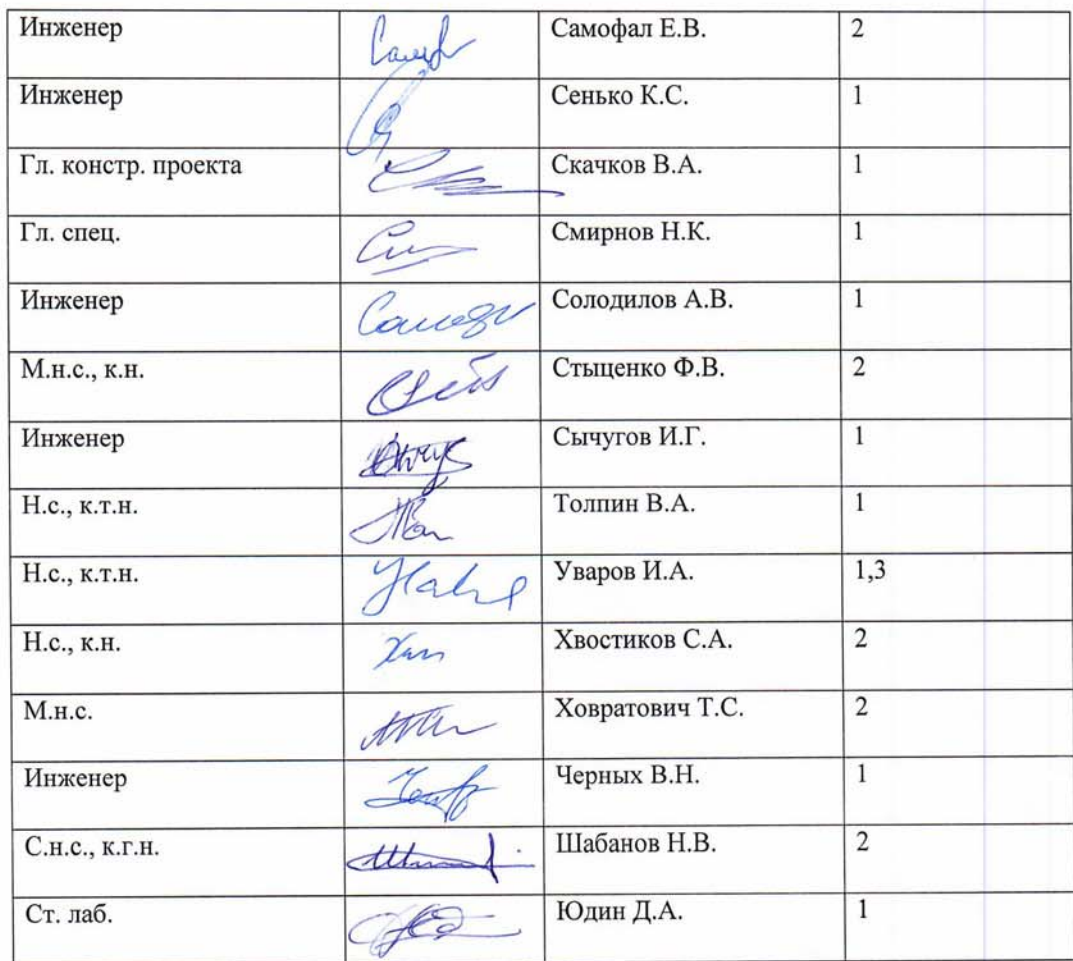 Инженер Самофал Е.В. 2
Инженер Сенько К.С. 1
Гл. констр. проекта Скачков В.А. 1
Гл. спец. Смирнов Н.К. 1
Инженер Солодилов А.В. 1
М.н.с., к.н. Стыценко Ф.В. 2
Инженер Сычугов И.Г. 1
Н.с., к.т.н. Толпин В.А. 1
Н.с., к.т.н. Уваров И.А. 1,3
Н.с., к.н. Хвостиков С.А. 2
М.н.с. Ховратович Т.С. 2
Инженер Черных В.Н. 1
С.н.с., к.г.н. Шабанов Н.В. 2
Ст. лаб. Юдин Д.А. 1